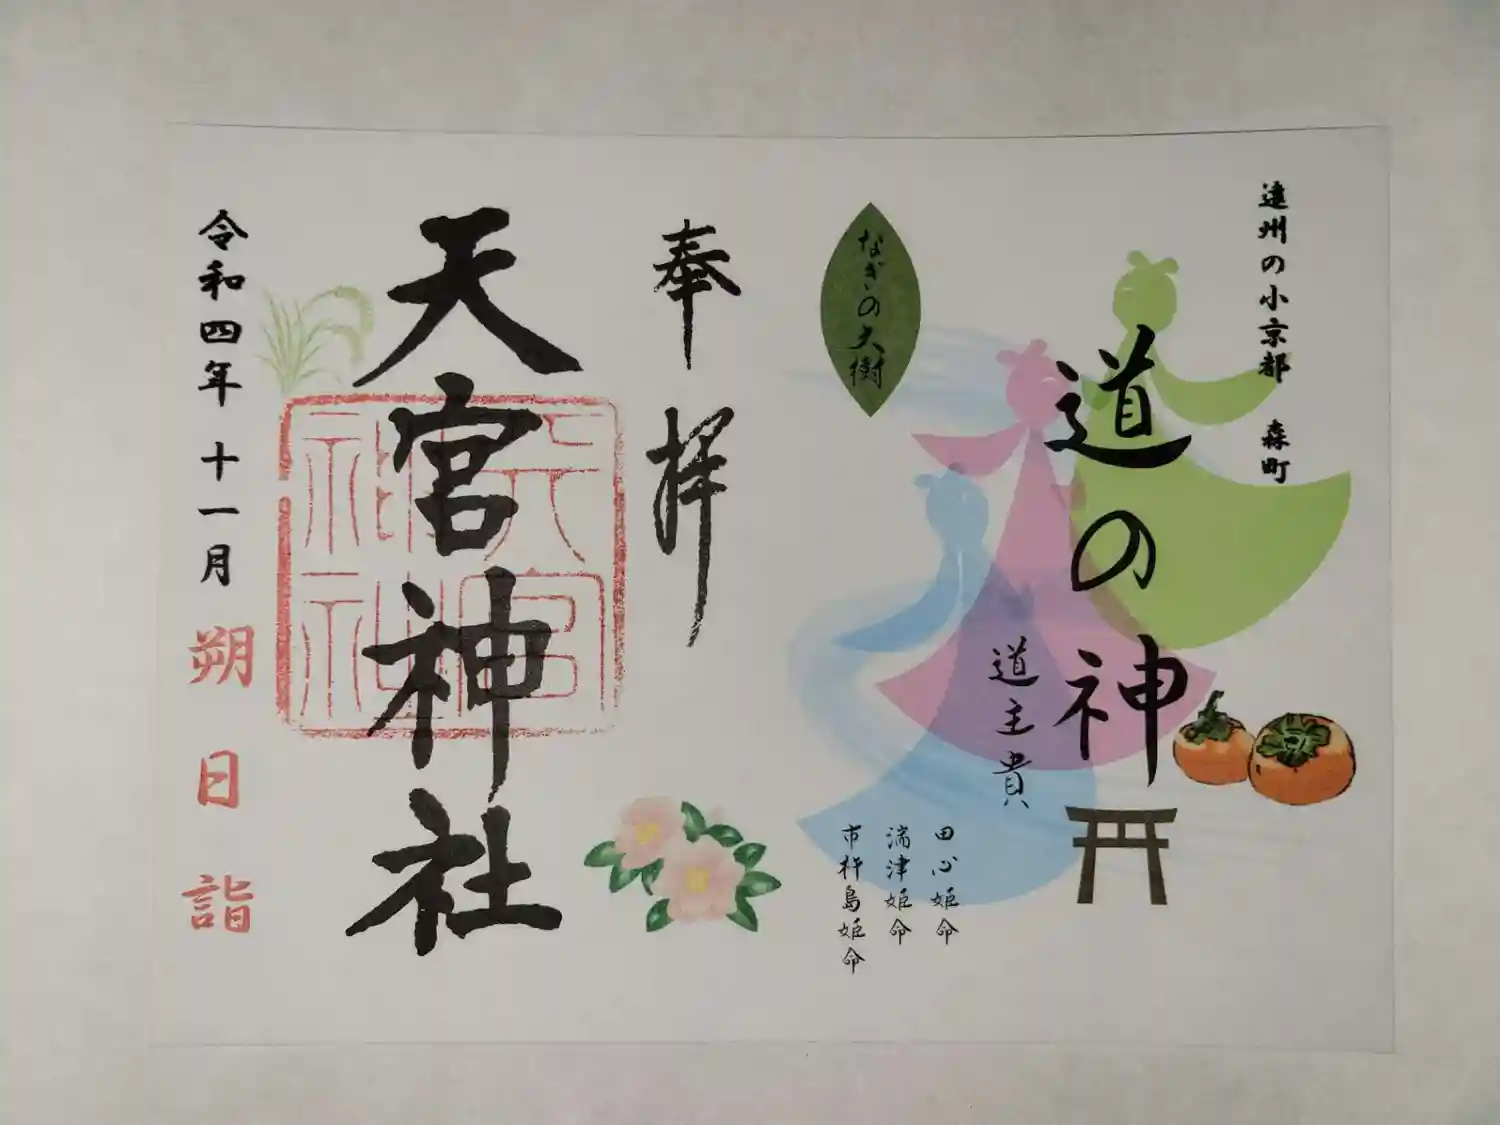 遠州の小京都 森町
道の神
道主貴
田心姫命
湍津姫命
市杵島姫命
なぎの大樹
奉拝
天宮神社
天宮
神社
令和四年 十一月 朔日詣